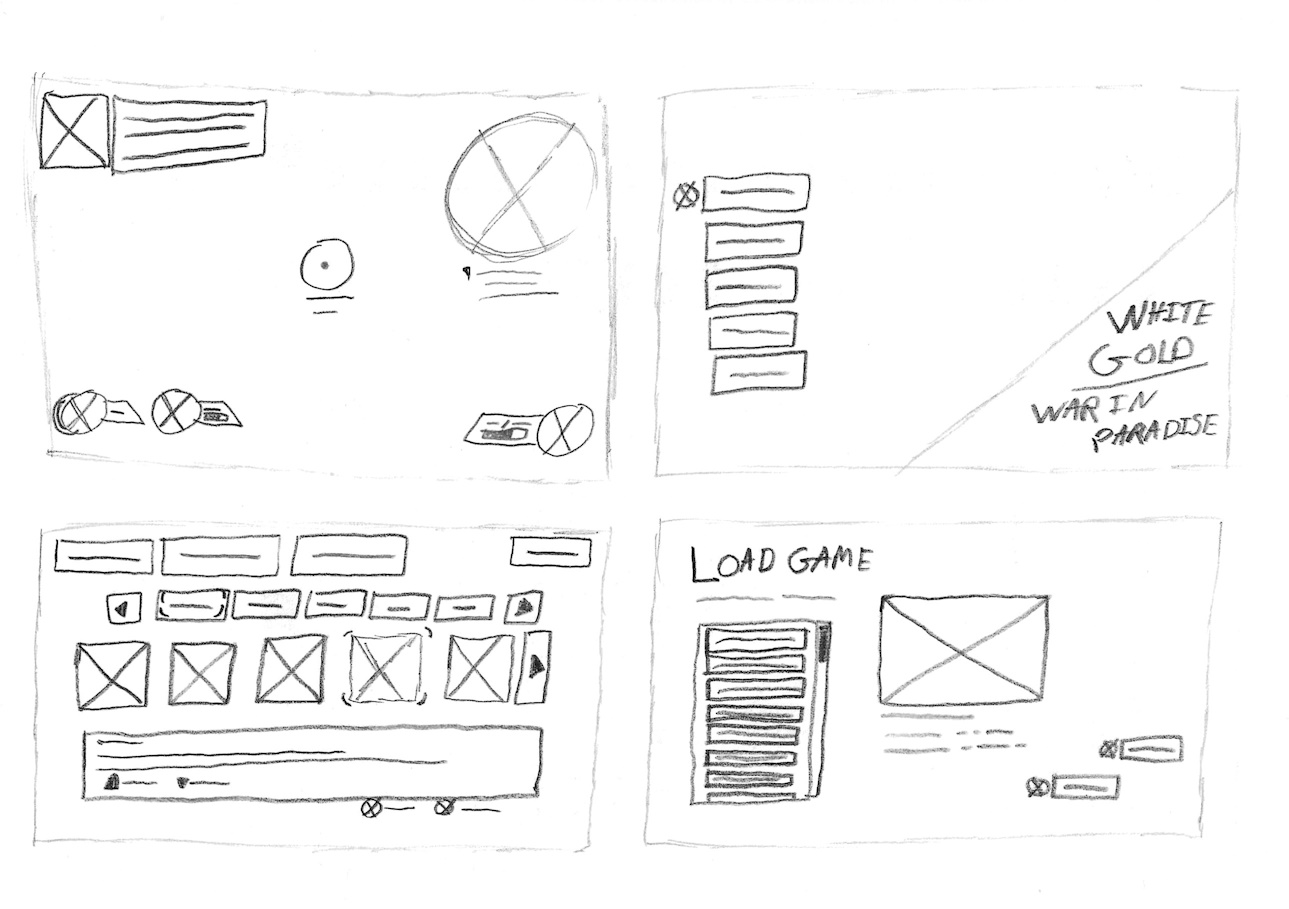 WHITE
GOLD
WAR IN
PARADISE
LOAD GAME